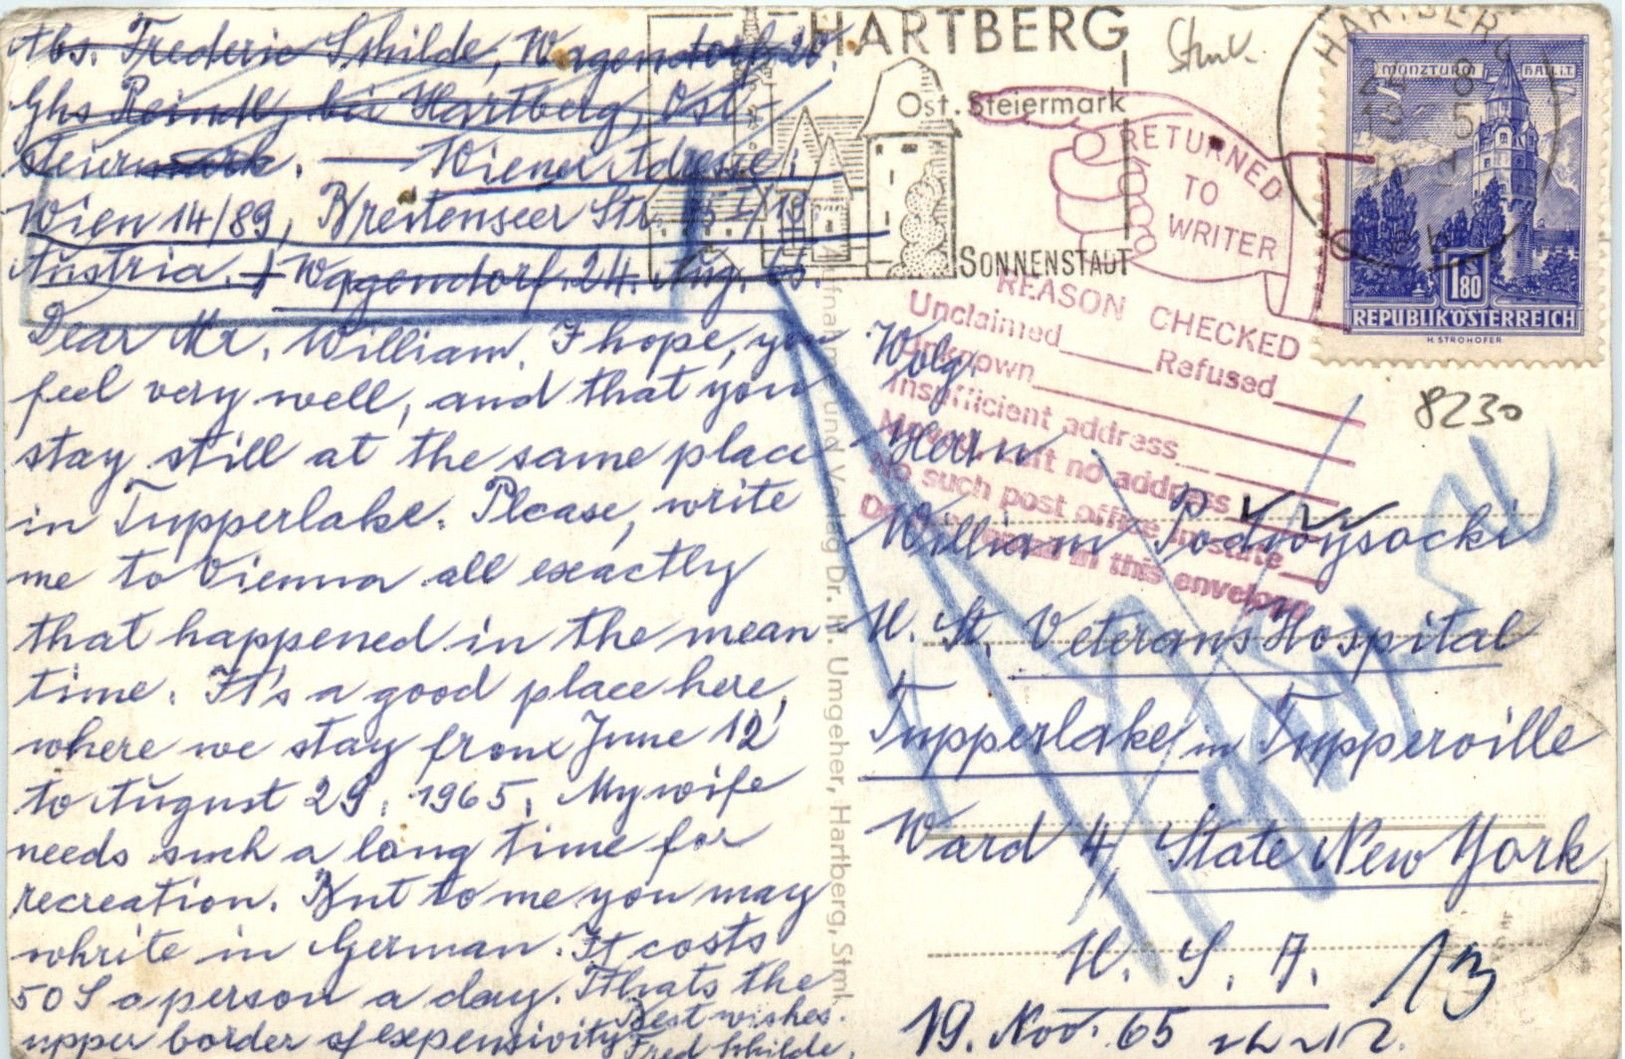 Abs. Frederic Schilde, Wagendorf 20.
Ghs Reindl, bei Hartberg, Ost-
steiermark. — Wiener Adresse:
Wien 14/89, Breitenseer Str.
Austria. Wagendorf. 24. Aug. 65.
Dear Mr. William. I hope, you
feel very well, and that you
stay still at the same place
in Tupperlake. Please, write
me to Vienna all exactly
that happened in the mean
time. It's a good place here,
where we stay from June 12
to August 29. 1965. My wife
needs such a long time for
recreation. But to me you may
whrite in German. It costs
50 S a person a day. Thats the
upper border of expensivity.
Best wishes.
Fred Schilde.
HARTBERG
Ost. Steiermark
SONNENSTADT
HARTBERG
MÜNZTURM HALL i.T.
1.80
REPUBLIK ÖSTERREICH
H. STROHOFER
RETURNED
TO
WRITER
REASON CHECKED
Unclaimed Refused
Unknown
Insufficient address
Moved, Left no address
No such post office in state
in this envelope
8230
Herrn
William Podwysocki
U. St. Veterans Hospital
Tupperlake in Tupperville
Ward 4, State New York
U. S. A.
19. Nov. 65
Dr. H. Umgeher, Hartberg, Stmk.